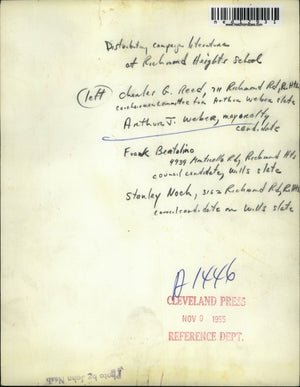 Distributing campaign literature
at Richmond Heights school
(left) Charles G. Reed, 711 Richmond Rd, R. Hts
committee Arthur Weber slate
Arthur J. Weber, mayoralty
candidate
Frank Bertolino
4939 Monticello Rd, Richmond Hts
council candidate, Wills slate
Stanley Noch, 3162 Richmond Rd, R. Hts
council candidate on Wills slate
A1446
CLEVELAND PRESS
NOV 9 1955
REFERENCE DEPT.
Photo by John Nash